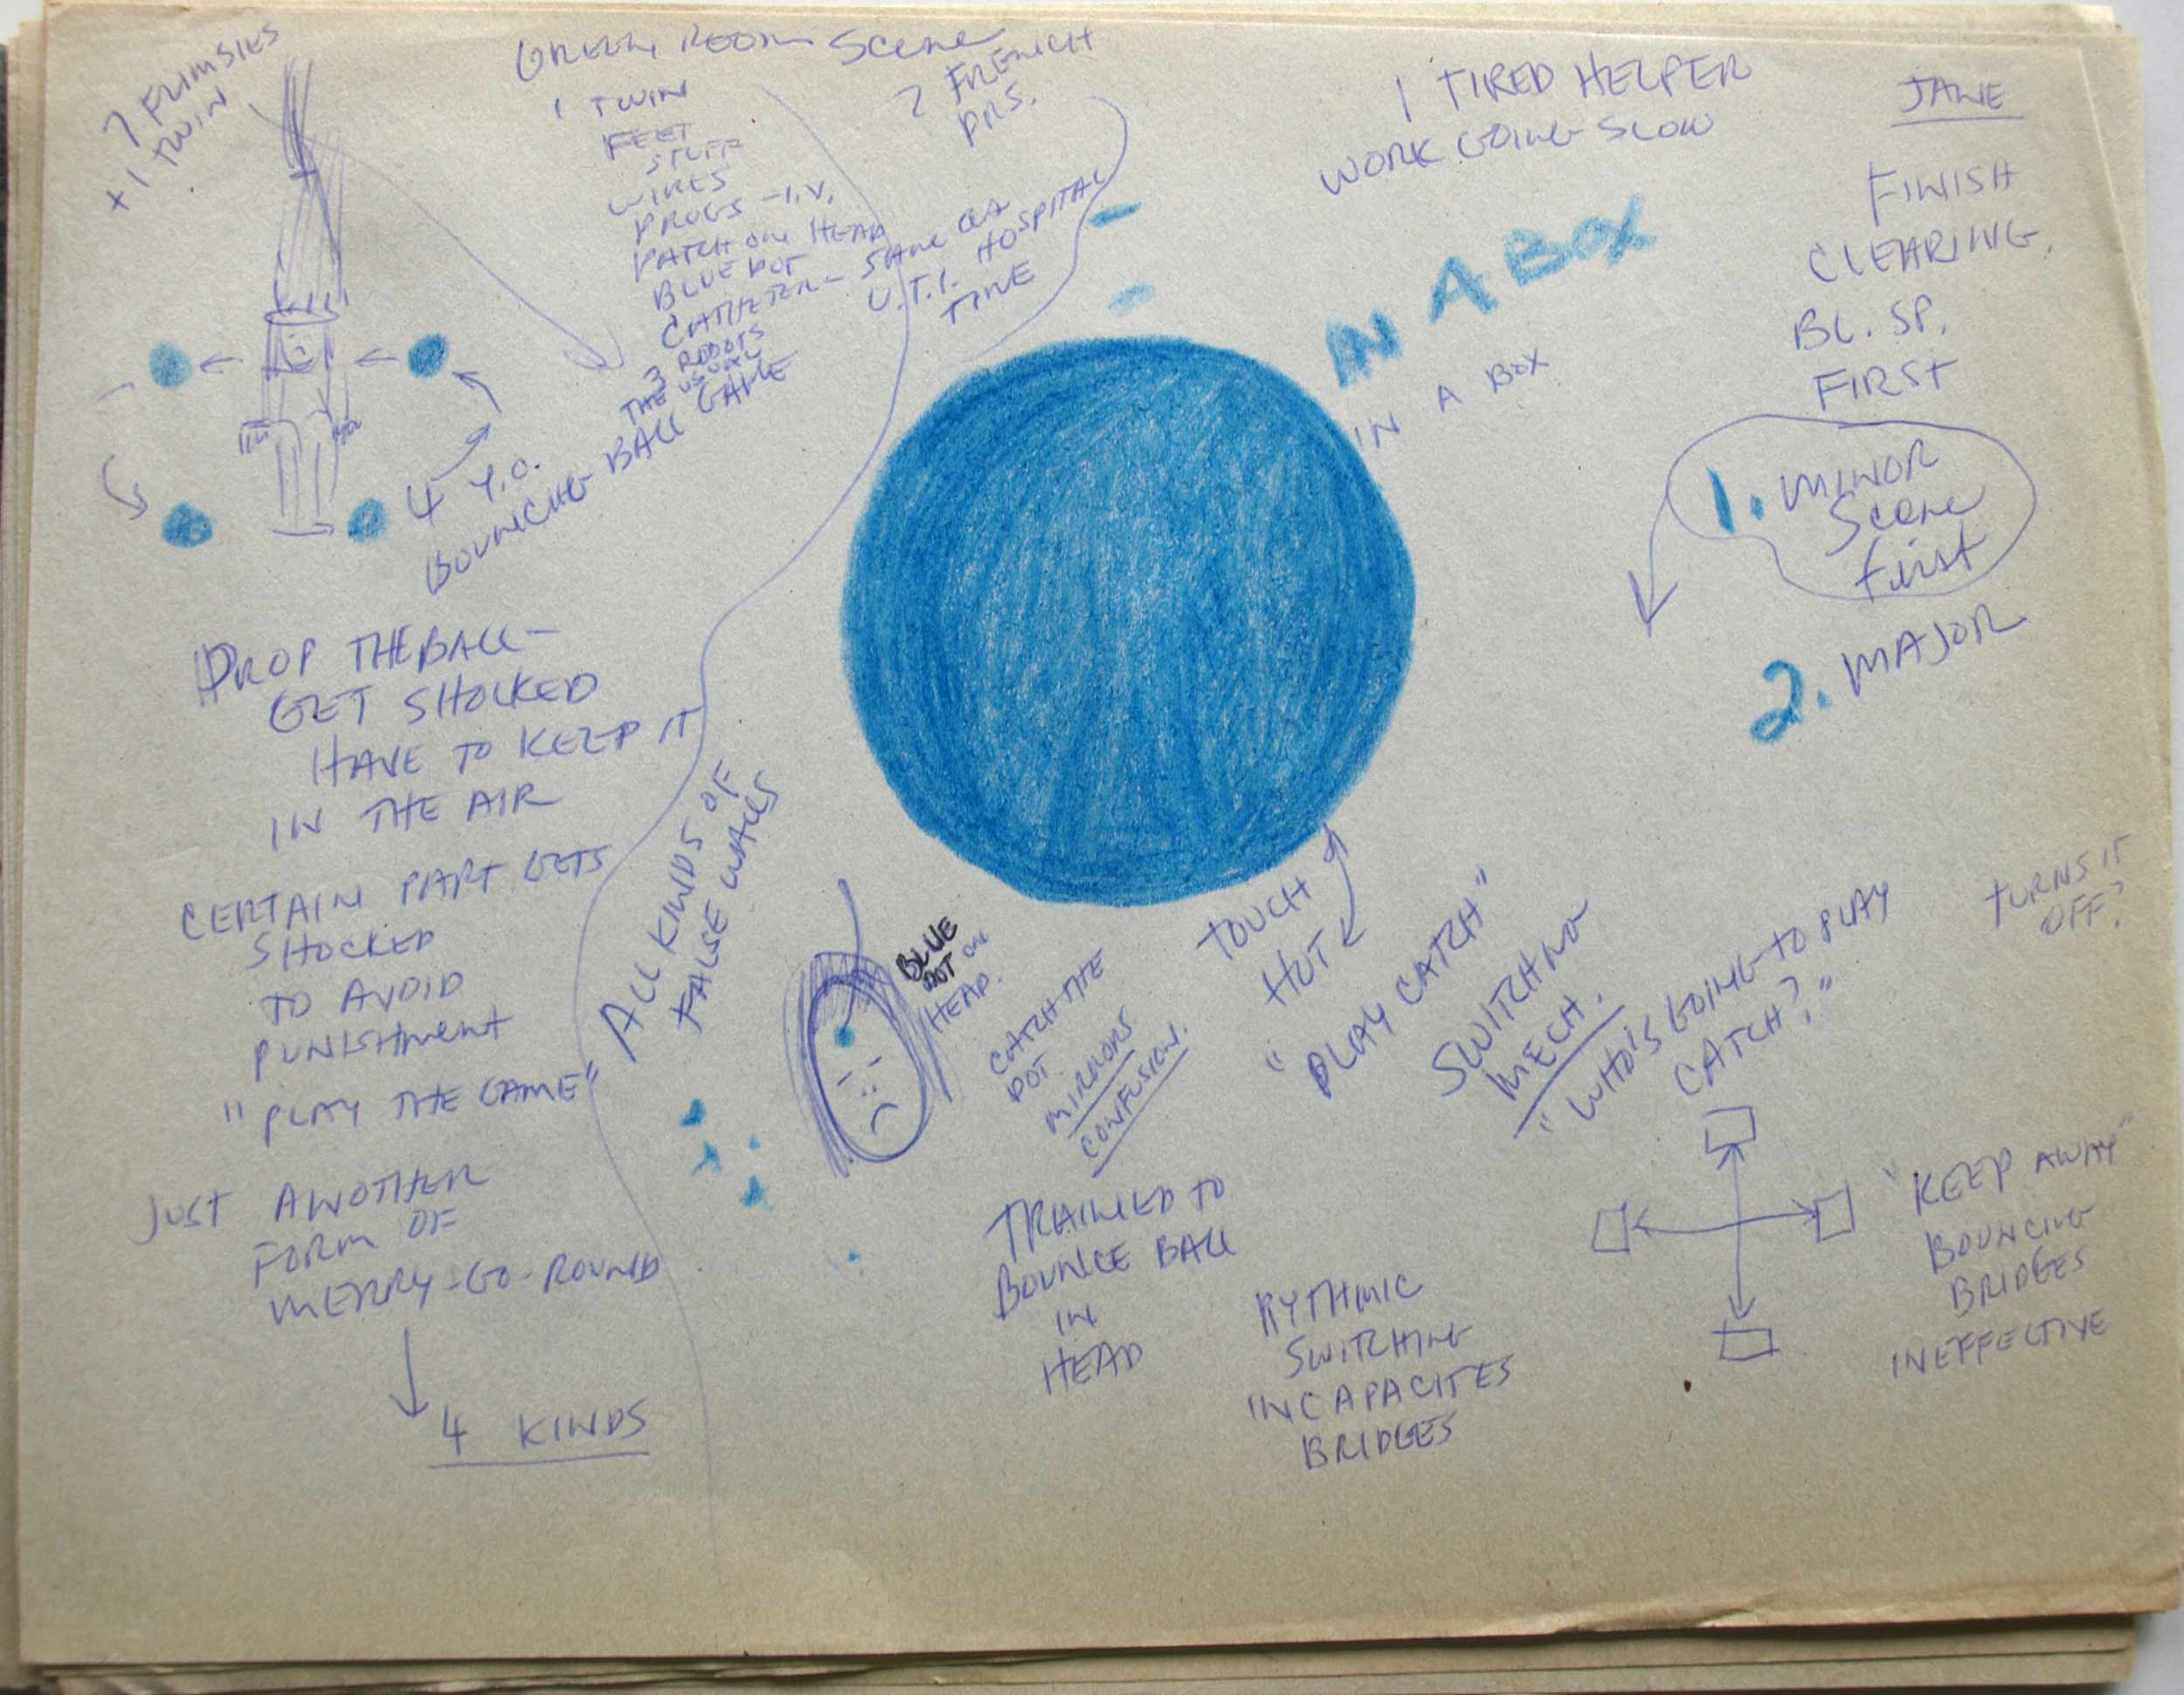 7 FLIMSIES
+ 1 TWIN
GREEN ROOM Scene
1 TWIN
FEET
STUFF
WIRES
PROGS - I.V.
PATCH ON HEAD
BLUE DOT
CATHETER - SAME AS
U.T.I. HOSPITAL
TIME
3 ROBOTS
THE USUAL
2 FRENCH
DRS.
4 Y.O.
BOUNCING BALL GAME
DROP THE BALL -
GET SHOCKED
HAVE TO KEEP IT
IN THE AIR
CERTAIN PART GETS
SHOCKED
TO AVOID
PUNISHMENT
"PLAY THE GAME"
JUST ANOTHER
FORM OF
MERRY-GO-ROUND
4 KINDS
ALL KINDS OF
FALSE WALLS
1 TIRED HELPER
WORK GOING SLOW
IN A BOX
IN A BOX
JANE
FINISH
CLEARING
BL. SP.
FIRST
1. MINOR
Scene
First
2. MAJOR
BLUE
DOT ON
HEAD.
CATCH THE
DOT
MIRRORS
CONFUSION.
TOUCH
HOT
"PLAY CATCH"
SWITCHING
MECH.
"WHO'S GOING TO PLAY
CATCH?"
TURNS IT
OFF?
TRAINED TO
BOUNCE BALL
IN
HEAD
RYTHMIC
SWITCHING
INCAPACITES
BRIDGES
"KEEP AWAY"
BOUNCING
BRIDGES
INEFFECTIVE